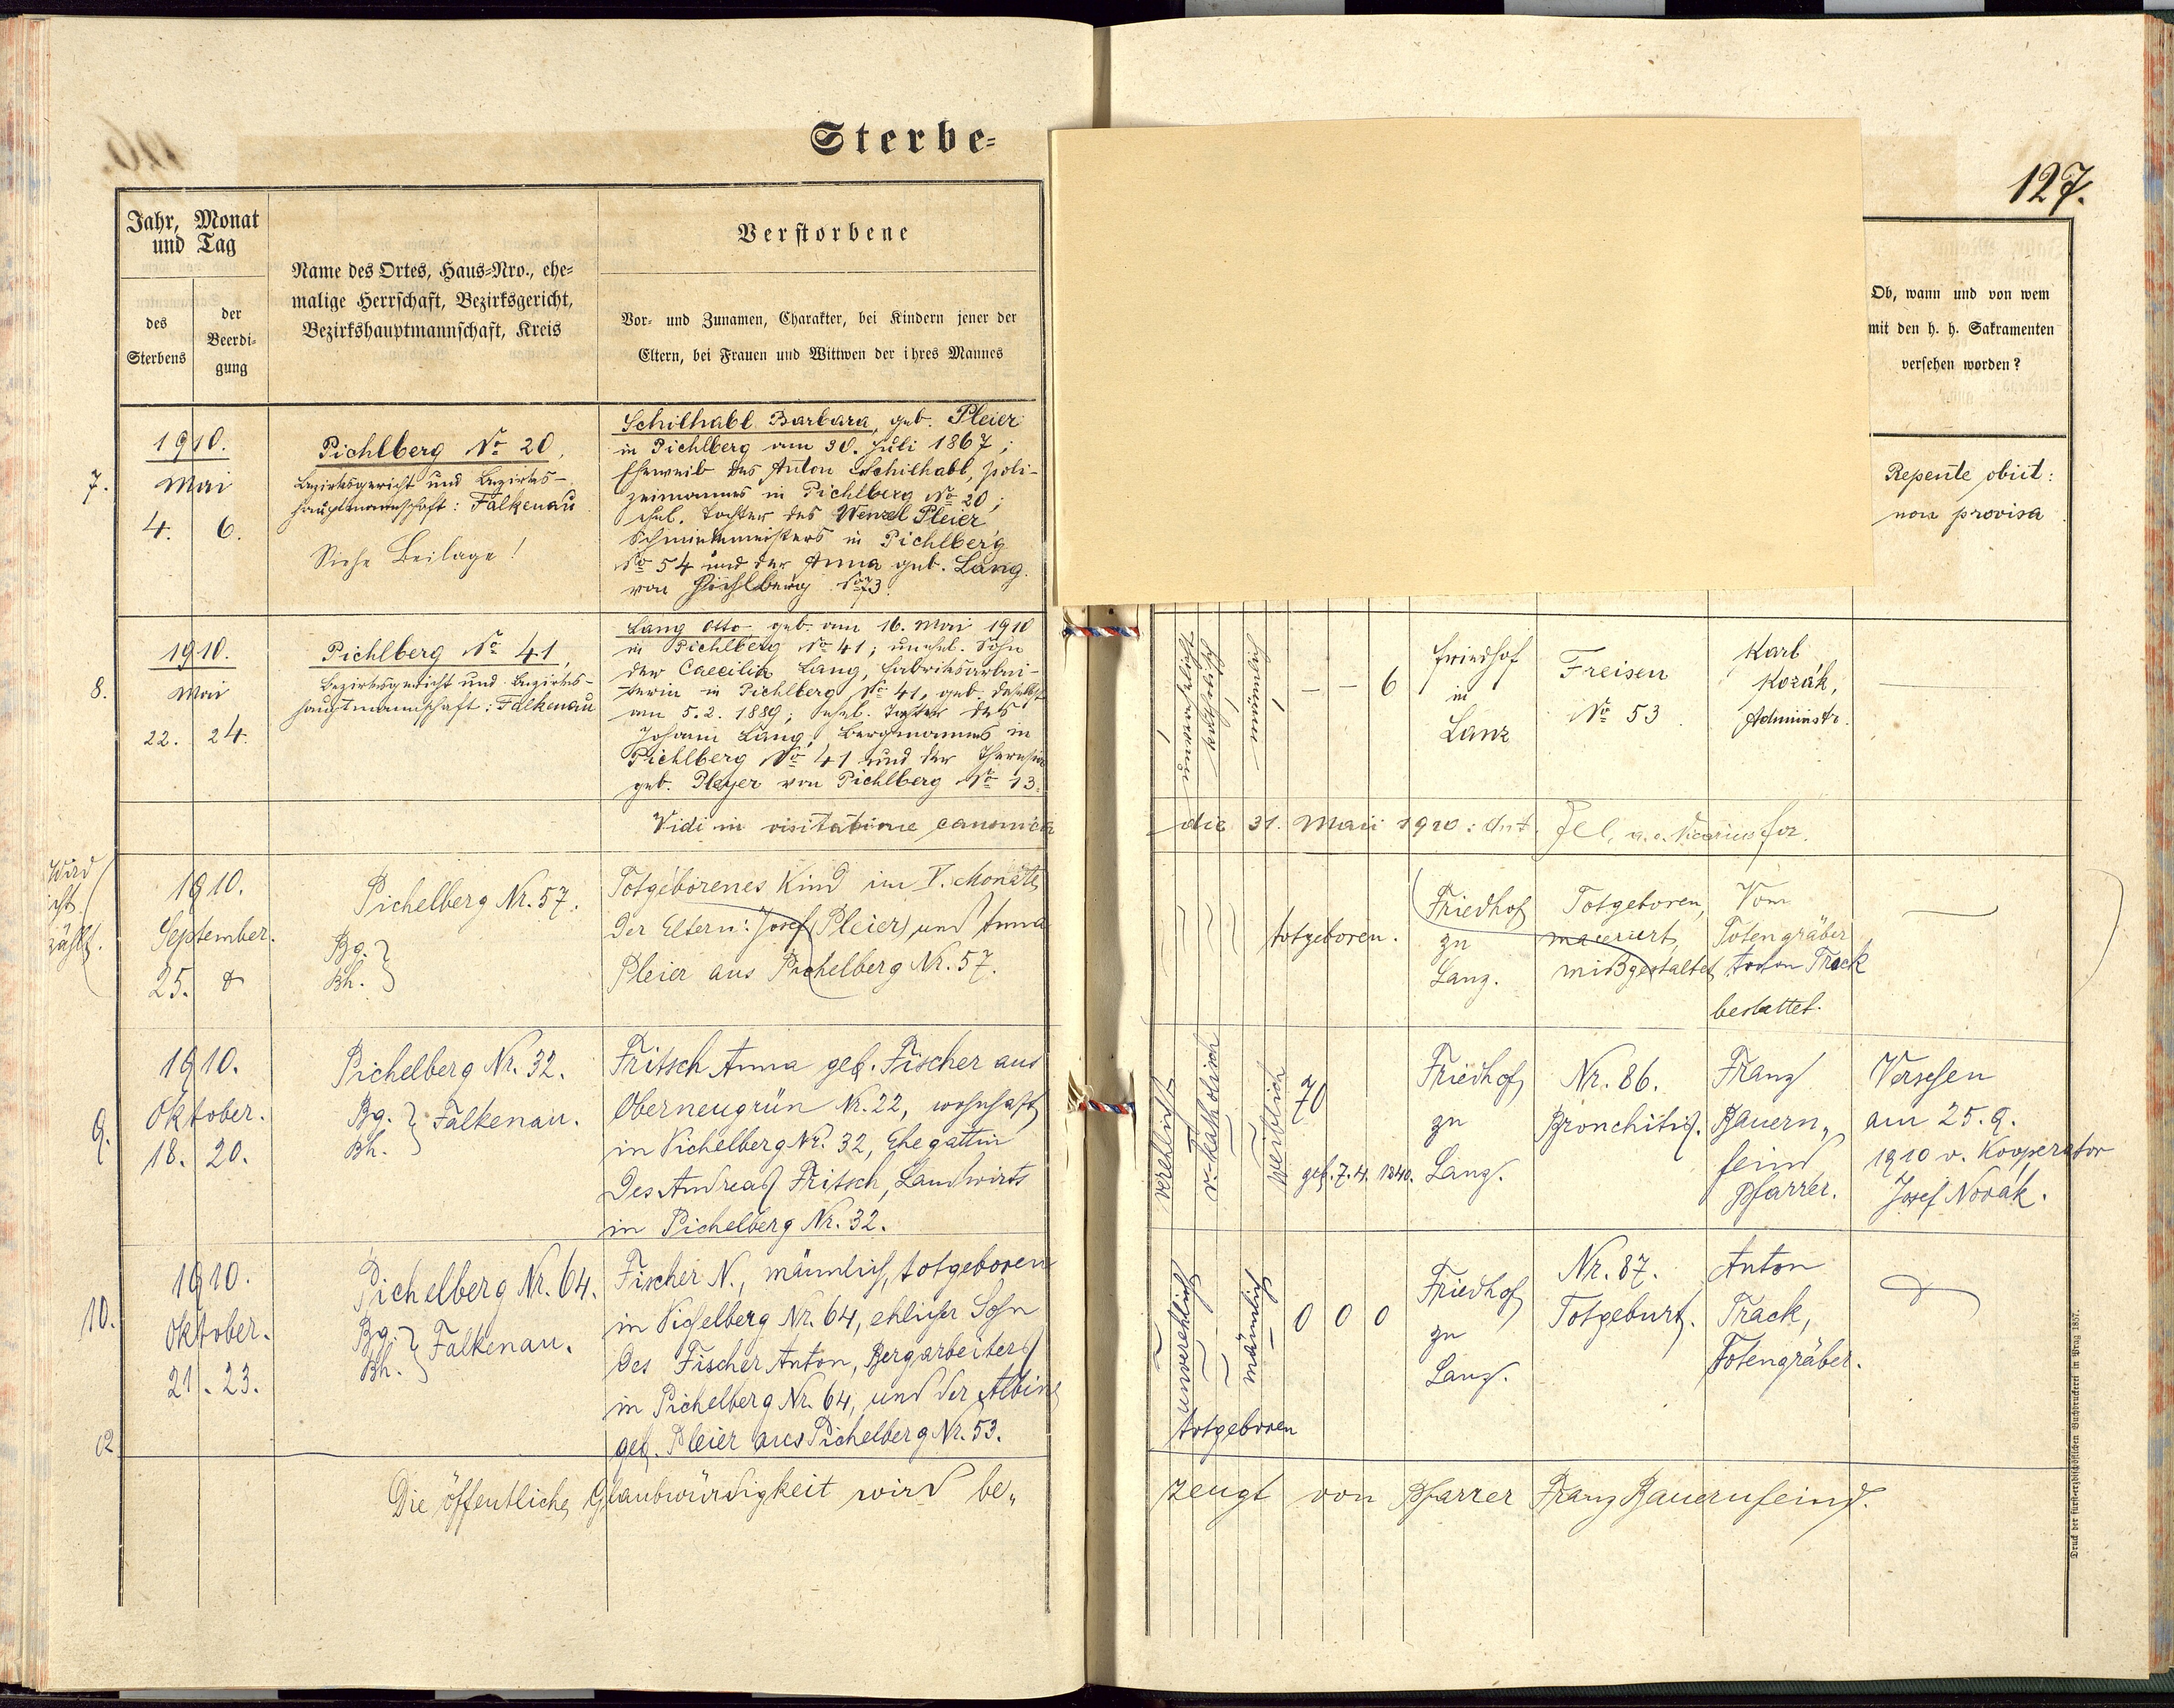 Sterbe=
127.
Jahr, Monat
und Tag
des
Sterbens
der
Beerdi=
gung
Name des Ortes, Haus=Nro., ehe=
malige Herrschaft, Bezirksgericht,
Bezirkshauptmannschaft, Kreis
Verstorbene
Vor= und Zunamen, Charakter, bei Kindern jener der
Eltern, bei Frauen und Wittwen der ihres Mannes
Ob, wann und von wem
mit den h. h. Sakramenten
versehen worden?
7.
1910.
Mai
4. 6.
Pichlberg No 20,
Bezirksgericht und Bezirks-
hauptmannschaft: Falkenau
Siehe Beilage!
Schilhabl Barbara, geb. Pleier
in Pichlberg am 30. Juli 1867;
Eheweib des Anton Schilhabl, Poli-
zeimannes in Pichlberg No 20;
ehel. Tochter des Wenzel Pleier,
Schmiedmeisters in Pichlberg
No 54 und der Anna geb. Lang
von Pichlberg No 73.
Repente obiit:
non provisa
8.
1910.
Mai
22. 24.
Pichlberg No 41,
Bezirksgericht und Bezirks-
hauptmannschaft: Falkenau
Lang Otto geb. am 16. Mai 1910
in Pichlberg No 41; unehel. Sohn
der Caecilia Lang, Fabriksarbei-
terin in Pichlberg No 41, geb. daselbst
am 5.2.1889; ehel. Tochter des
Johann Lang, Bergmannes in
Pichlberg No 41 und der Theresia
geb. Pleyer von Pichlberg No 13.
unverehelicht
katholisch
männlich
– – 6
Friedhof
in
Lanz
Freisen
No 53.
Karl
Kozák,
Administr.
Vidi in visitatione canonica
die 31. Maii 1910: Ant. Fel, a. e. Vicarius for.
Wird
zählt.
1910.
September.
25.
Pichelberg Nr. 57.
Bg. }
Bh. }
Totgeborenes Kind im V. Monate
der Eltern: Josef (Pleier) und Anna
Pleier aus Pichelberg Nr. 57.
totgeboren.
Friedhof
zu
Lanz.
Totgeboren,
maceriert,
mißgestaltet
Vom
Totengräber
Anton Track
bestattet.
9.
1910.
Oktober.
18. 20.
Pichelberg Nr. 32.
Bg. } Falkenau.
Bh. }
Fritsch Anna geb. Fischer aus
Oberneugrün Nr. 22, wohnhaft
in Pichelberg Nr. 32, Ehegattin
des Andreas Fritsch, Landwirts
in Pichelberg Nr. 32.
verehlicht
r. katholisch
weiblich
70
geb. 7. 4. 1840.
Friedhof
zu
Lanz.
Nr. 86.
Bronchitis.
Franz
Bauern„
feind
Pfarrer.
Versehen
am 25. 9.
1910 v. Kooperator
Josef Novák.
10.
1910.
Oktober.
21. 23.
Pichelberg Nr. 64.
Bg. } Falkenau.
Bh. }
Fischer N., männlich, totgeboren
in Pichelberg Nr. 64, ehlicher Sohn
des Fischer Anton, Bergarbeiters
in Pichelberg Nr. 64, und der Albine
geb. Pleier aus Pichelberg Nr. 53.
unverehlicht
männlich
0 0 0
totgeboren
Friedhof
zu
Lanz.
Nr. 87.
Totgeburt.
Anton
Track,
Totengräber.
Die öffentliche Glaubwürdigkeit wird be„
zeugt von Pfarrer Franz Bauernfeind.
Druck der fürst-erzbischöflichen Buchdruckerei in Prag 1857.